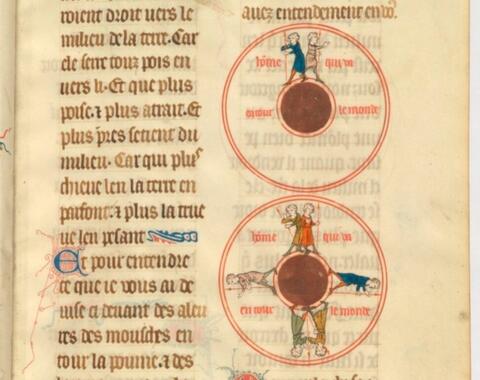 roient droit vers le
milieu de la terre. Car
ele serre touz pois en
uers li. Et que plus
poise. ⁊ plus atrait. Et
plus pres se tient du
milieu. Car qui plus
chieue len la terre en
parfont. ⁊ plus la true
ue len pesant
Et pour entendre
ce que ie vous ai de
uise ci deuant des aleu
res des mousches en
tour la poume. ⁊ des
auez entendement en dos.
lome qui va
entour le monde
lome qui va
en tour le monde